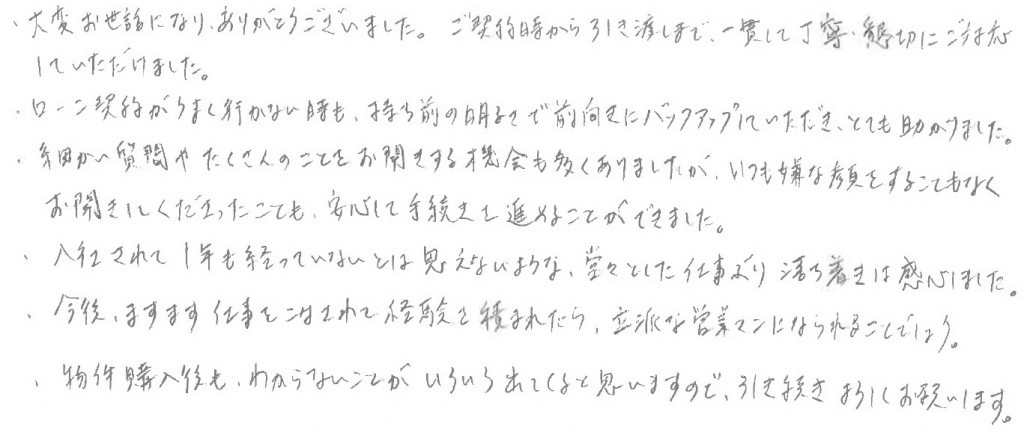 ・大変お世話になり、ありがとうございました。ご契約時から引き渡しまで、一貫して丁寧・懇切にご対応
していただけました。
・ローン契約がうまく行かない時も、持ち前の明るさで前向きにバックアップしていただき、とても助かりました。
・細かい質問やたくさんのことをお聞きする機会も多くありましたが、いつも嫌な顔をすることもなく
お聞きしてくださったことも、安心して手続きを進めることができました。
・入社されて1年も経っていないとは思えないような、堂々とした仕事ぶり落ち着きは感心しました。
・今後、ますます仕事をこなされて経験を積まれたら、立派な営業マンになられることでしょう。
・物件購入後も、わからないことがいろいろ出てくると思いますので、引き続きよろしくお願いします。